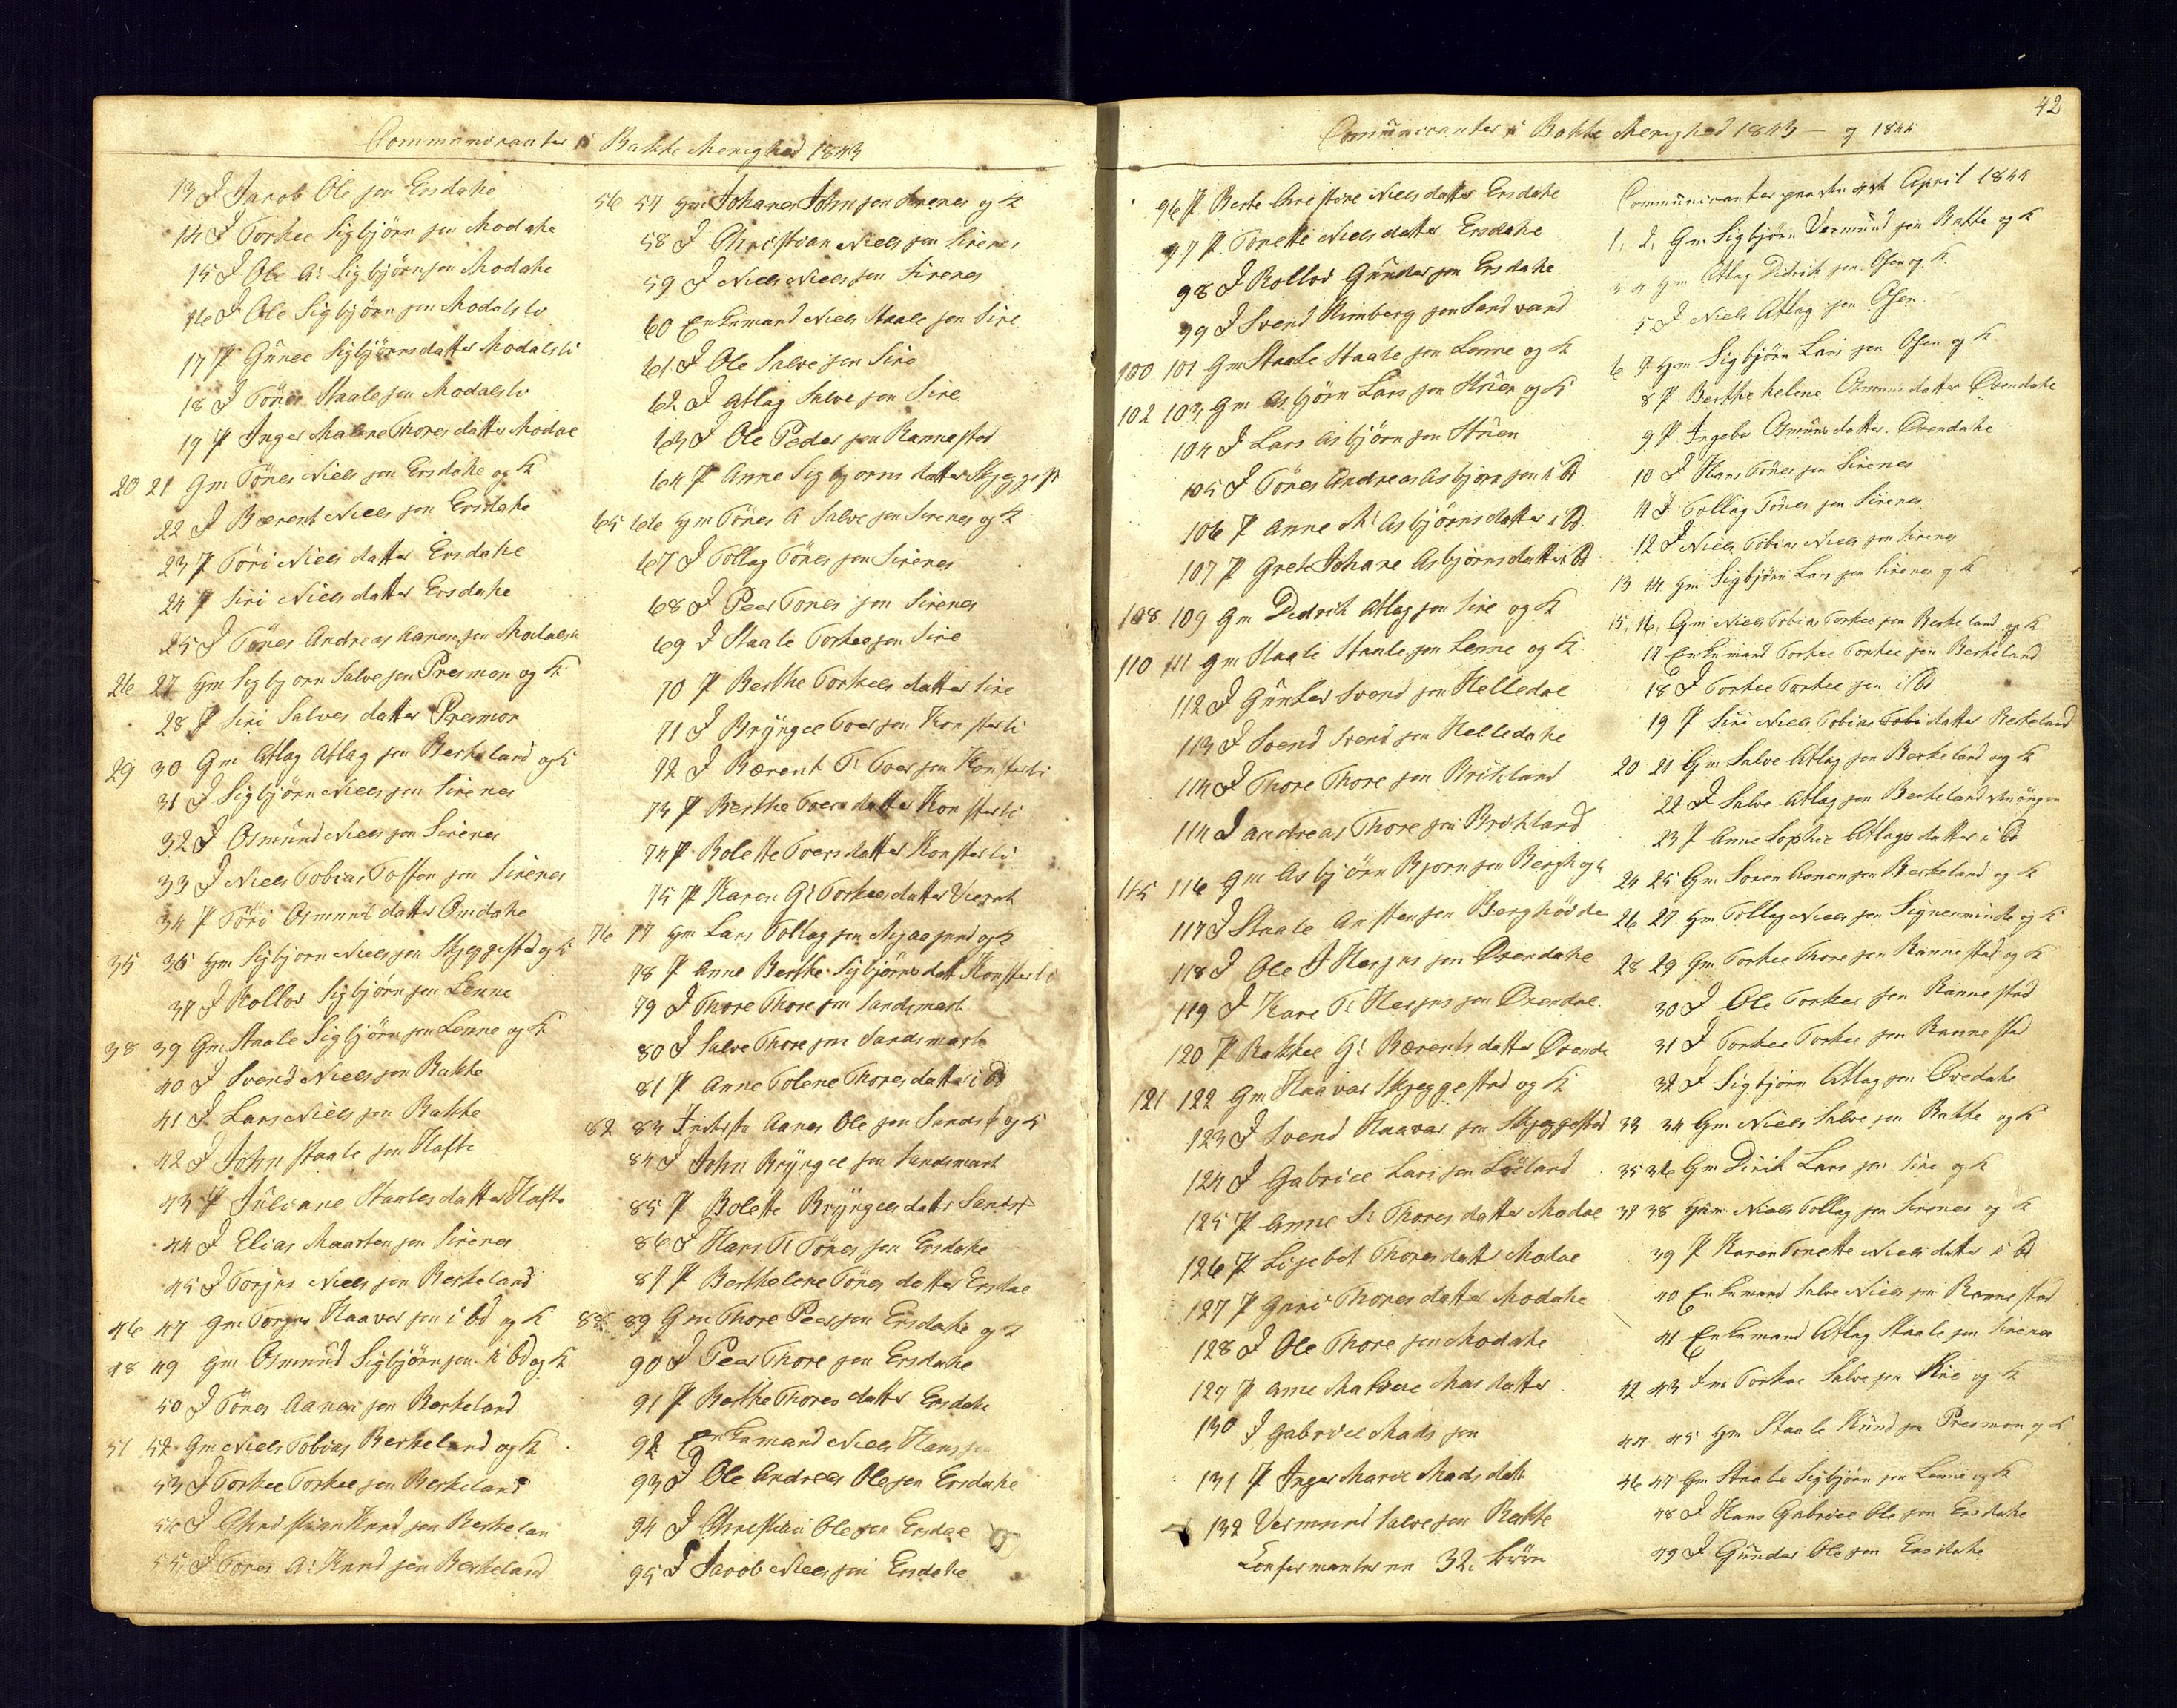 Communicanter i Bakke Menighed 1843
13 J Jacob Ole sen Ersdahe
14 J Torkee Sigbjörn sen Modahe
15 J Ole A: Sigbjörnsen Modahe
16 J Ole Sigbjörn sen Modalsli
17 P Gunee Sigbjörnsdatter Modalsli
18 J Tönes Staale sen Modalsli
19 P Inger Malene Thores datter Modae
20 21 Gm Tönes Niels sen Ersdahe og K
22 J Bærent Niels sen Ersdahe
23 P Töri Niels datter Ersdahe
24 P Siri Niels datter Ersdahe
25 J Tönes Andreas Aanen sen
26 27 Hm Sigbjorn Salve sen Presmon og K
28 P Siri Salves datter Presmon
29 30 Gm Atlag Atlag sen Berkeland og K
31 J Sigbjörn Niels sen Sirenes
32 J Osmund Niels sen Sirenes
33 J Niels Tobias Tosten sen Sirenes
34 P Töri Osmund datter
35 36 Hm Sigbjorn Niels sen Skjeggestad og K
37 J Rollov Sigbjörn sen Lenne
38 39 Gm Staale Sigbjörn sen Lenne og K
40 J Svend Niels sen Bakke
41 J Lars Niels sen Bakke
42 J John Staale sen Hafte
43 P Juliane Staales datter Hafte
44 J Elias Maarten sen Sirenes
45 J Torjus Niels sen Berkeland
46 47 Gm Torjus Haaver sen i bd og K
48 49 Gm Osmund Sigbjörn sen i bd og K
50 J Tönes Aanen sen Berkeland
51 52 Gm Niels Tobias Berkeland og K
53 J Torkee Torkee sen Berkeland
54 J Christian Knud sen Berkelan
55 J Tönes A: Knud sen Berkeland
56 57 Hm Johanes John sen Sirenes og K
58 J Christian Niels sen Sirenes
59 J Niels Niels sen Sirenes
60 Enkemand Niels Staale sen Sire
61 J Ole Salve sen Sire
62 J Atlag Salve sen Sire
63 J Ole Peder sen Rannestad
64 P Anne Sigbjorns datter Skjeggest
65 66 Hm Tönes A Salve sen Sirenes og K
67 J Tollag Tönes sen Sirenes
68 J Peer Tones sen Sirenes
69 J Staale Torkee sen Sire
70 P Berthe Torkees datter Sire
71 J Bryngee Toer sen Konsterli
72 J Bærent T: Toer sen Konsterli
73 P Berthe Toers datter Konsterli
74 P Bolette Toers datter Konsterli
75 P Karen G: Torkees datter
76 77 Hm Lars Tollag sen og K
78 P Anne Berthe Sigbjörns dat Konsterli
79 J Thore Thore sen Sandsmark
80 J Salve Thore sen Sandsmark
81 P Anne Tolene Thores datter i bd
82 83 Aanes Ole sen Sandsf og K
84 J John Bryngee sen Sandsmark
85 P Bolette Bryngees datt Sandsf
86 J Hans T: Tönes sen Ersdahe
87 P Berthelene Tönes datter Ersdae
88 89 Gm Thore Peer sen Ersdahe og K
90 J Peer Thore sen Ersdahe
91 P Berthe Thores datter Ersdahe
92 Enkemand Niels Hans sen
93 J Ole Andreas Ole sen Ersdahe
94 J Christian Ole sen Ersdae
95 J Jacob Niels sen Ersdahe
42
Comunicanter i Bakke Menighed 1843 – og 1844
96 P Berte Christine Niels datter Ersdahe
97 P Tonette Niels datter Ersdahe
98 J Rollov Gunder sen Ersdahe
99 J Svend Kimberg sen Sandvand
100 101 Gm Staale Staale sen Lenne og K
102 103 Gm Asbjörn Lars sen Stuen og K
104 J Lars Asbjörn sen Stuen
105 J Tönes Andreas Asbjörn sen i bd
106 P Anne M: Asbjörns datter i bd
107 P Grete Johane Asbjorns datter i bd
108 109 Gm Dedrik Atlag sen Sire og K
110 111 Gm Staale Staale sen Lenne og K
112 J Gunder Svend sen Helledae
113 J Svend Svend sen Helledahe
114 J Thore Thore sen Brikland
114 J Andreas Thore sen Brikland
115 116 Gm Asbjörn Bjorn sen Bergh og K
117 J Staale Austen sen Berghödde
118 J Ole J Kerjus sen Ovendahe
119 J Kare T: Kerjus sen Ovendae
120 P Rakkee G: Bærents datter Ovenda
121 122 Gm Haavar Skjeggestad og K
123 J Svend Haavar sen Skjeggestad
124 J Gabriee Lars sen Löiland
125 P Anne S: Thores datter Modae
126 P Lisebet Thores datt Modae
127 P Guri Thores datter Modahe
128 J Ole Thore sen Modahe
129 P Ane Malene Mas datter
130 J Gabriee Mads sen
131 P Inger Marie Mads datt
132 Vermund Salve sen Bakke
Confermanterne 32. Börn
Communicanter April 1844
1, 2, Gm Sigbjörn Vermund sen Bakke og K
3 4 Gm Atlag Didrik sen Osen og K
5 J Niels Atlag sen Osen
6 7 Hm Sigbjörn Lars sen Osen og K
8 P Berthe Helene Osmuns datter Ovendahe
9 P Ingebor Osmuns datter Ovendahe
10 J Hans Tönes sen Sirenes
11 J Tollag Tönes sen Sirenes
12 J Niels Tobias Niels sen Sirenes
13 14 Hm Sigbjörn Lars sen Sirenes og K
15, 16, Gm Niels Tobias Torkee sen Berkeland og K
17 Enkemand Torkee Torkee sen Berkeland
18 J Torkee Torkee sen i bd
19 P Siri Niels Tobias datter Berkeland
20 21 Gm Salve Atlag sen Berkeland og K
22 J Salve Atlag sen Berkeland
23 P Anne Sophie Atlags datter i bd
24 25 Gm Soren Aanen sen Berkeland og K
26 27 Hm Tollag Niels sen og K
28 29 Gm Torkee Thore sen Rannestad og K
30 J Ole Torkee sen Rannestad
31 J Torkee Torkee sen Rannestad
32 J Sigbjörn Atlag sen Ovedahe
33 34 Gm Niels Salve sen Bakke og K
35 36 Gm Dirik Lars sen Sire og K
37 38 Hm Niels Tollag sen Sirenes og K
39 P Karen Tonette Niels datter i bd
40 Enkemand Salve Niels sen Rannestad
41 Enkemand Atlag Staale sen Sirenes
42 43 Torkee Salve sen Sire og K
44 45 Hm Staale Knud sen Presmon og K
46 47 Gm Staale Sigbjörn sen Lenne og K
48 J Hans Gabriee Ole sen Ersdahe
49 J Gunder Ole sen Ersdahe